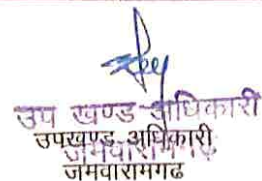 उप खण्ड अधिकारी
उपखण्ड अधिकारी
जमवारामगढ़
जमवारामगढ